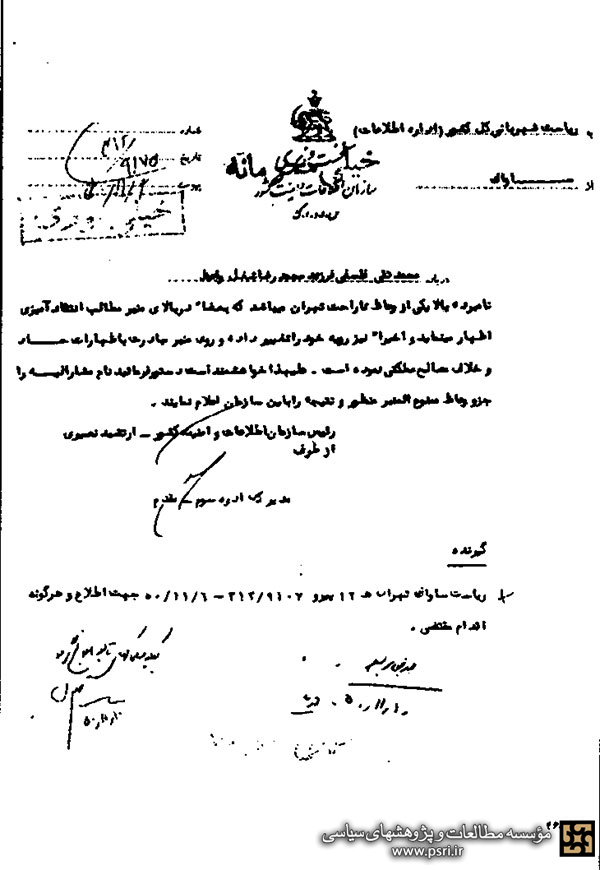 به ریاست شهربانی کل کشور (اداره اطلاعات)
از ساواک
شماره
۳۱۲/
تاریخ
۹۱۷۵
نخست وزیری
سازمان اطلاعات و امنیت کشور
س.ا.و.ا.ک
درباره محمدتقی فلسفی فرزند محمدرضا شغل واعظ
نامبرده بالا یکی از وعاظ ناراحت تهران میباشد که بعضاً در بالای منبر مطالب انتقادآمیزی
اظهار مینماید و اخیراً نیز رویه خود را تغییر داده و روی منبر مبادرت باظهارات حاد
و خلاف مصالح مملکتی نموده است . علیهذا خواهشمند است دستور فرمائید نام مشارالیه را
جزو وعاظ ممنوع المنبر منظور و نتیجه را باین سازمان اعلام نمایند .
رئیس سازمان اطلاعات و امنیت کشور – ارتشبد نصیری
از طرف
مدیر کل اداره سوم – مقدم
گیرنده
ریاست ساواک تهران
جهت اطلاع و هرگونه
اقدام مقتضی .
۴۶
مؤسسه مطالعات و پژوهشهای سیاسی
www.psri.ir